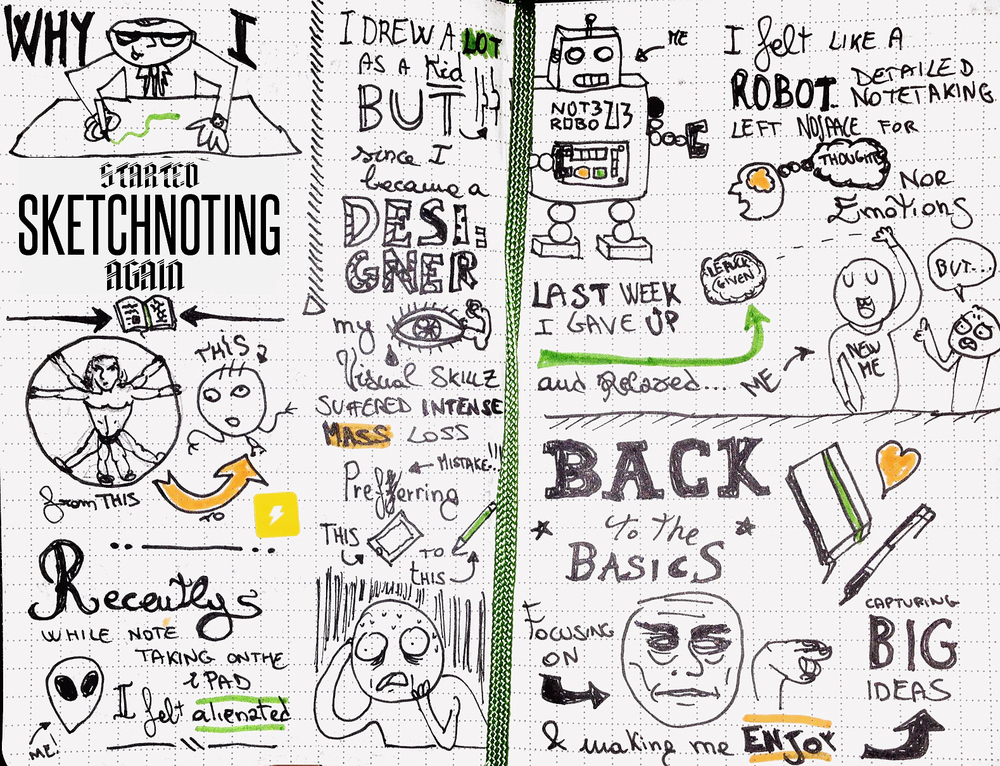 WHY I
STARTED
SKETCHNOTING
AGAIN
THIS?
from THIS
TO
Recently
WHILE NOTE
TAKING ON THE
iPAD
I felt alienated
ME!
I DREW A LOT
AS A Kid
BUT
since I
became a
DESI-
GNER
my
Visual SKILLZ
SUFFERED INTENSE
MASS LOSS
MISTAKE...!!!
Prefferring
THIS
TO
THIS
ME
I felt LIKE A
ROBOT. DETAILED
NOTETAKING
LEFT NO SPACE FOR
THOUGHTS
NOR
Emotions
LAST WEEK
I GAVE UP
and Relaxed...
ME
NEW
ME
BUT...
BACK
to the
BASICS
FOCUSING
ON
CAPTURING
BIG
IDEAS
& making me ENJOY